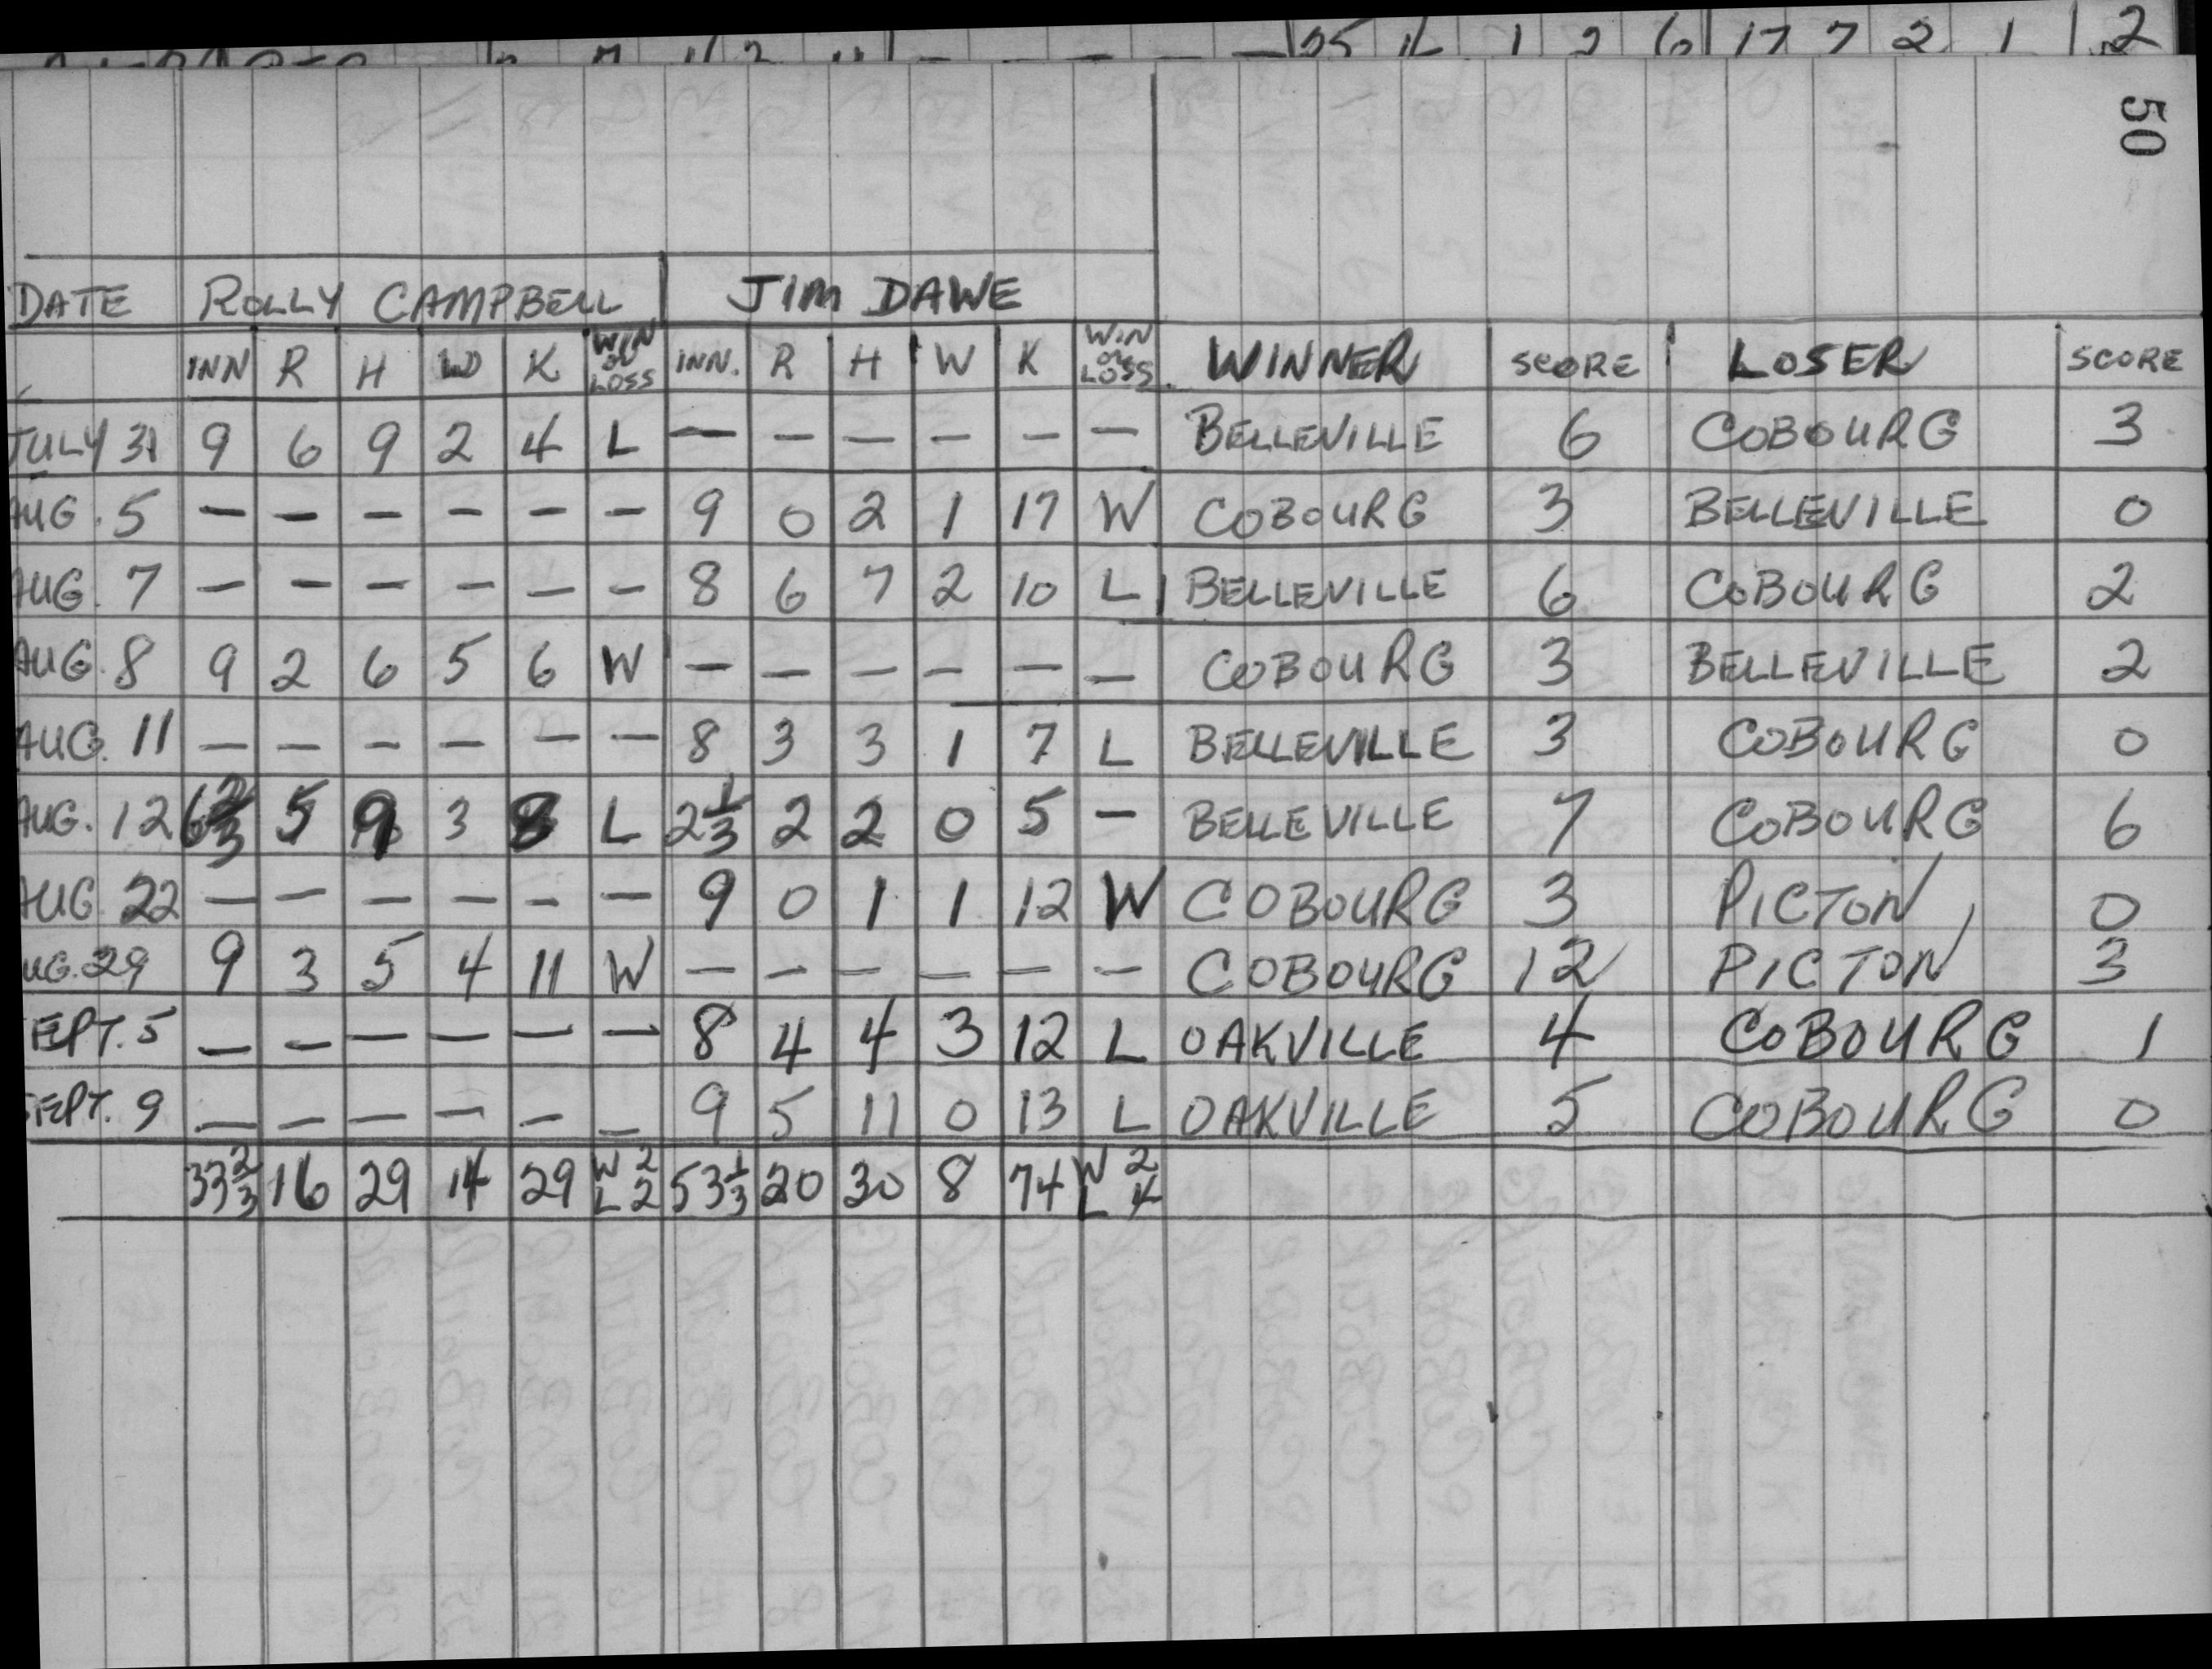 25 4 1 2 6 17 7 2 1 2
50
DATE ROLLY CAMPBELL JIM DAWE
INN R H W K WIN OR LOSS INN. R H W K WIN OR LOSS WINNER SCORE LOSER SCORE
JULY 31 9 6 9 2 4 L — — — — — — BELLEVILLE 6 COBOURG 3
AUG. 5 — — — — — — 9 0 2 1 17 W COBOURG 3 BELLEVILLE 0
AUG. 7 — — — — — — 8 6 7 2 10 L BELLEVILLE 6 COBOURG 2
AUG. 8 9 2 6 5 6 W — — — — — — COBOURG 3 BELLEVILLE 2
AUG. 11 — — — — — — 8 3 3 1 7 L BELLEVILLE 3 COBOURG 0
AUG. 12 6 2/3 5 9 3 8 L 2 1/3 2 2 0 5 — BELLEVILLE 7 COBOURG 6
AUG. 22 — — — — — — 9 0 1 1 12 W COBOURG 3 PICTON 0
UG. 29 9 3 5 4 11 W — — — — — — COBOURG 12 PICTON 3
EPT. 5 — — — — — — 8 4 4 3 12 L OAKVILLE 4 COBOURG 1
EPT. 9 — — — — — — 9 5 11 0 13 L OAKVILLE 5 COBOURG 0
33 2/3 16 29 14 29 W 2 L 2 53 1/3 20 30 8 74 W 2 L 4